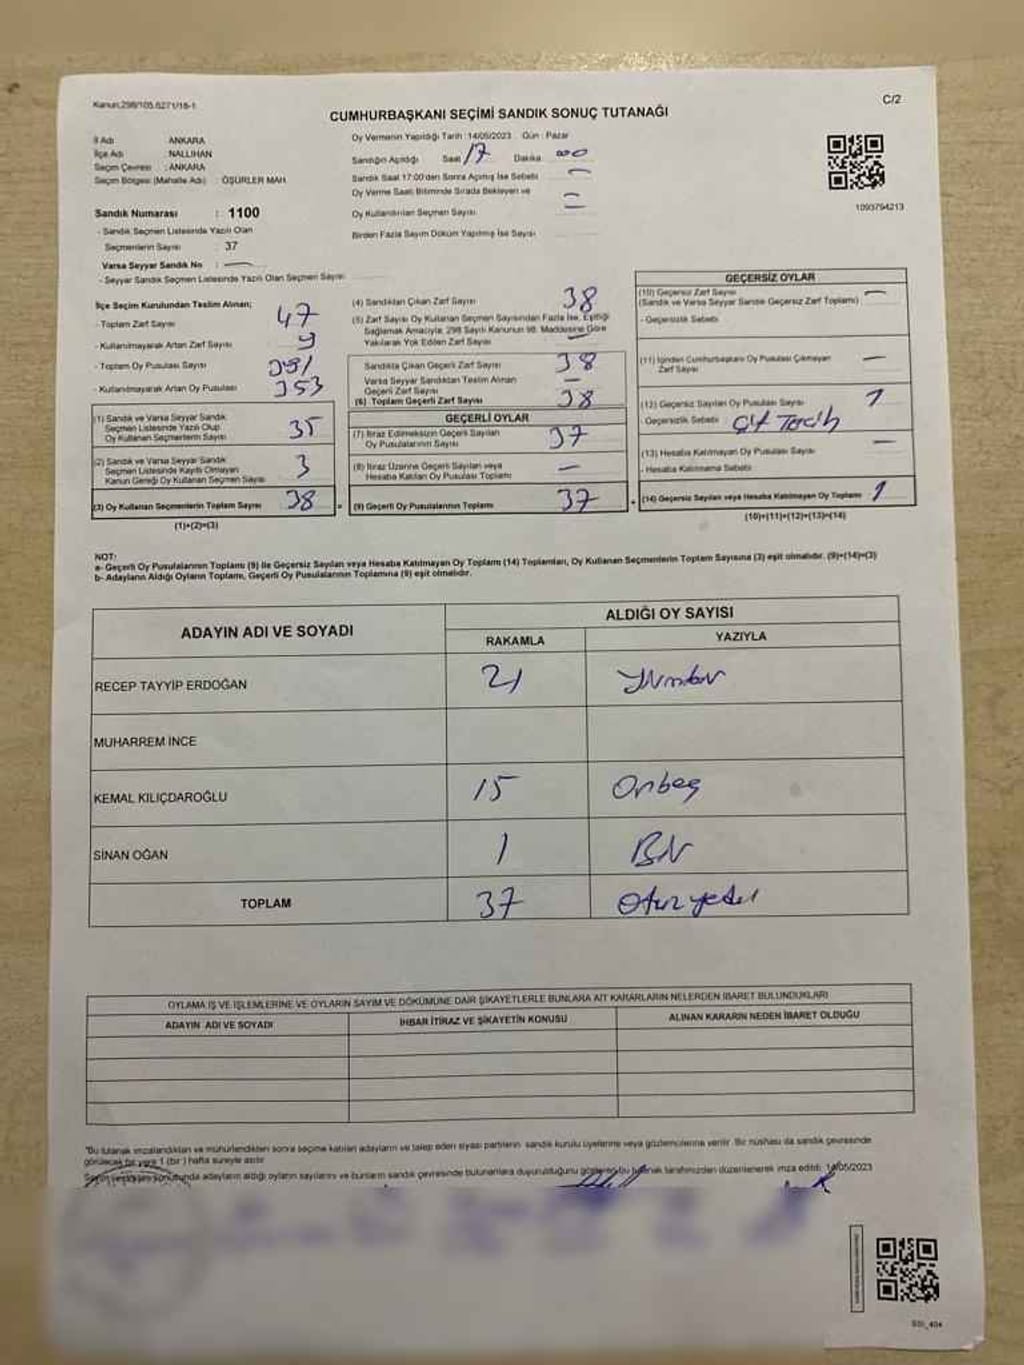 Kanun:298/105.6271/16-1
C/2
CUMHURBAŞKANI SEÇİMİ SANDIK SONUÇ TUTANAĞI
İl Adı : ANKARA
İlçe Adı : NALLIHAN
Seçim Çevresi : ANKARA
Seçim Bölgesi (Mahalle Adı) : ÖŞÜRLER MAH
Oy Vermenin Yapıldığı Tarih : 14/05/2023 Gün : Pazar
Sandığın Açıldığı Saat 17 Dakika 00
Sandık Saat 17:00'den Sonra Açılmış İse Sebebi —
Oy Verme Saati Bitiminde Sırada Bekleyen ve
Oy Kullandırılan Seçmen Sayısı
Birden Fazla Sayım Döküm Yapılmış İse Sayısı
1093794213
Sandık Numarası : 1100
- Sandık Seçmen Listesinde Yazılı Olan
Seçmenlerin Sayısı : 37
Varsa Seyyar Sandık No : —
- Seyyar Sandık Seçmen Listesinde Yazılı Olan Seçmen Sayısı:
İlçe Seçim Kurulundan Teslim Alınan;
- Toplam Zarf Sayısı 47
- Kullanılmayarak Artan Zarf Sayısı 9
- Toplam Oy Pusulası Sayısı 391
- Kullanılmayarak Artan Oy Pusulası 353
(1) Sandık ve Varsa Seyyar Sandık
Seçmen Listesinde Yazılı Olup
Oy Kullanan Seçmenlerin Sayısı 35
(2) Sandık ve Varsa Seyyar Sandık
Seçmen Listesinde Kayıtlı Olmayan
Kanun Gereği Oy Kullanan Seçmen Sayısı 3
(3) Oy Kullanan Seçmenlerin Toplam Sayısı 38
(1)+(2)=(3)
(4) Sandıktan Çıkan Zarf Sayısı 38
(5) Zarf Sayısı Oy Kullanan Seçmen Sayısından Fazla İse, Eşitliği
Sağlamak Amacıyla, 298 Sayılı Kanunun 98. Maddesine Göre
Yakılarak Yok Edilen Zarf Sayısı —
Sandıkta Çıkan Geçerli Zarf Sayısı 38
Varsa Seyyar Sandıktan Teslim Alınan
Geçerli Zarf Sayısı —
(6) Toplam Geçerli Zarf Sayısı 38
GEÇERLİ OYLAR
(7) İtiraz Edilmeksizin Geçerli Sayılan
Oy Pusulalarının Sayısı 37
(8) İtiraz Üzerine Geçerli Sayılan veya
Hesaba Katılan Oy Pusulası Toplamı —
(9) Geçerli Oy Pusulalarının Toplamı 37
GEÇERSİZ OYLAR
(10) Geçersiz Zarf Sayısı —
(Sandık ve Varsa Seyyar Sandık Geçersiz Zarf Toplamı)
- Geçersizlik Sebebi
(11) İçinden Cumhurbaşkanı Oy Pusulası Çıkmayan
Zarf Sayısı —
(12) Geçersiz Sayılan Oy Pusulası Sayısı 1
- Geçersizlik Sebebi Çift Tercih
(13) Hesaba Katılmayan Oy Pusulası Sayısı —
- Hesaba Katılmama Sebebi
(14) Geçersiz Sayılan veya Hesaba Katılmayan Oy Toplamı 1
(10)+(11)+(12)+(13)=(14)
NOT:
a- Geçerli Oy Pusulalarının Toplamı (9) ile Geçersiz Sayılan veya Hesaba Katılmayan Oy Toplamı (14) Toplamları, Oy Kullanan Seçmenlerin Toplam Sayısına (3) eşit olmalıdır. (9)+(14)=(3)
b- Adayların Aldığı Oyların Toplamı, Geçerli Oy Pusulalarının Toplamına (9) eşit olmalıdır.
ADAYIN ADI VE SOYADI
ALDIĞI OY SAYISI
RAKAMLA YAZIYLA
RECEP TAYYİP ERDOĞAN 21 Yirmibir
MUHARREM İNCE
KEMAL KILIÇDAROĞLU 15 Onbeş
SİNAN OĞAN 1 Bir
TOPLAM 37 Otuzyedi
OYLAMA İŞ VE İŞLEMLERİNE VE OYLARIN SAYIM VE DÖKÜMÜNE DAİR ŞİKAYETLERLE BUNLARA AİT KARARLARIN NELERDEN İBARET BULUNDUKLARI
ADAYIN ADI VE SOYADI
İHBAR İTİRAZ VE ŞİKAYETİN KONUSU
ALINAN KARARIN NEDEN İBARET OLDUĞU
*Bu tutanak imzalandıktan ve mühürlendikten sonra seçime katılan adayların ve talep eden siyasi partilerin sandık kurulu üyelerine veya gözlemcilerine verilir. Bir nüshası da sandık çevresinde
görülecek bir yere 1 (bir) hafta süreyle asılır.
Seçim konusunda adayların aldığı oyların sayılarını ve bunların sandık çevresinde bulunanlara duyurulduğunu gösteren bu tutanak tarafımızdan düzenlenerek imza edildi. 14/05/2023